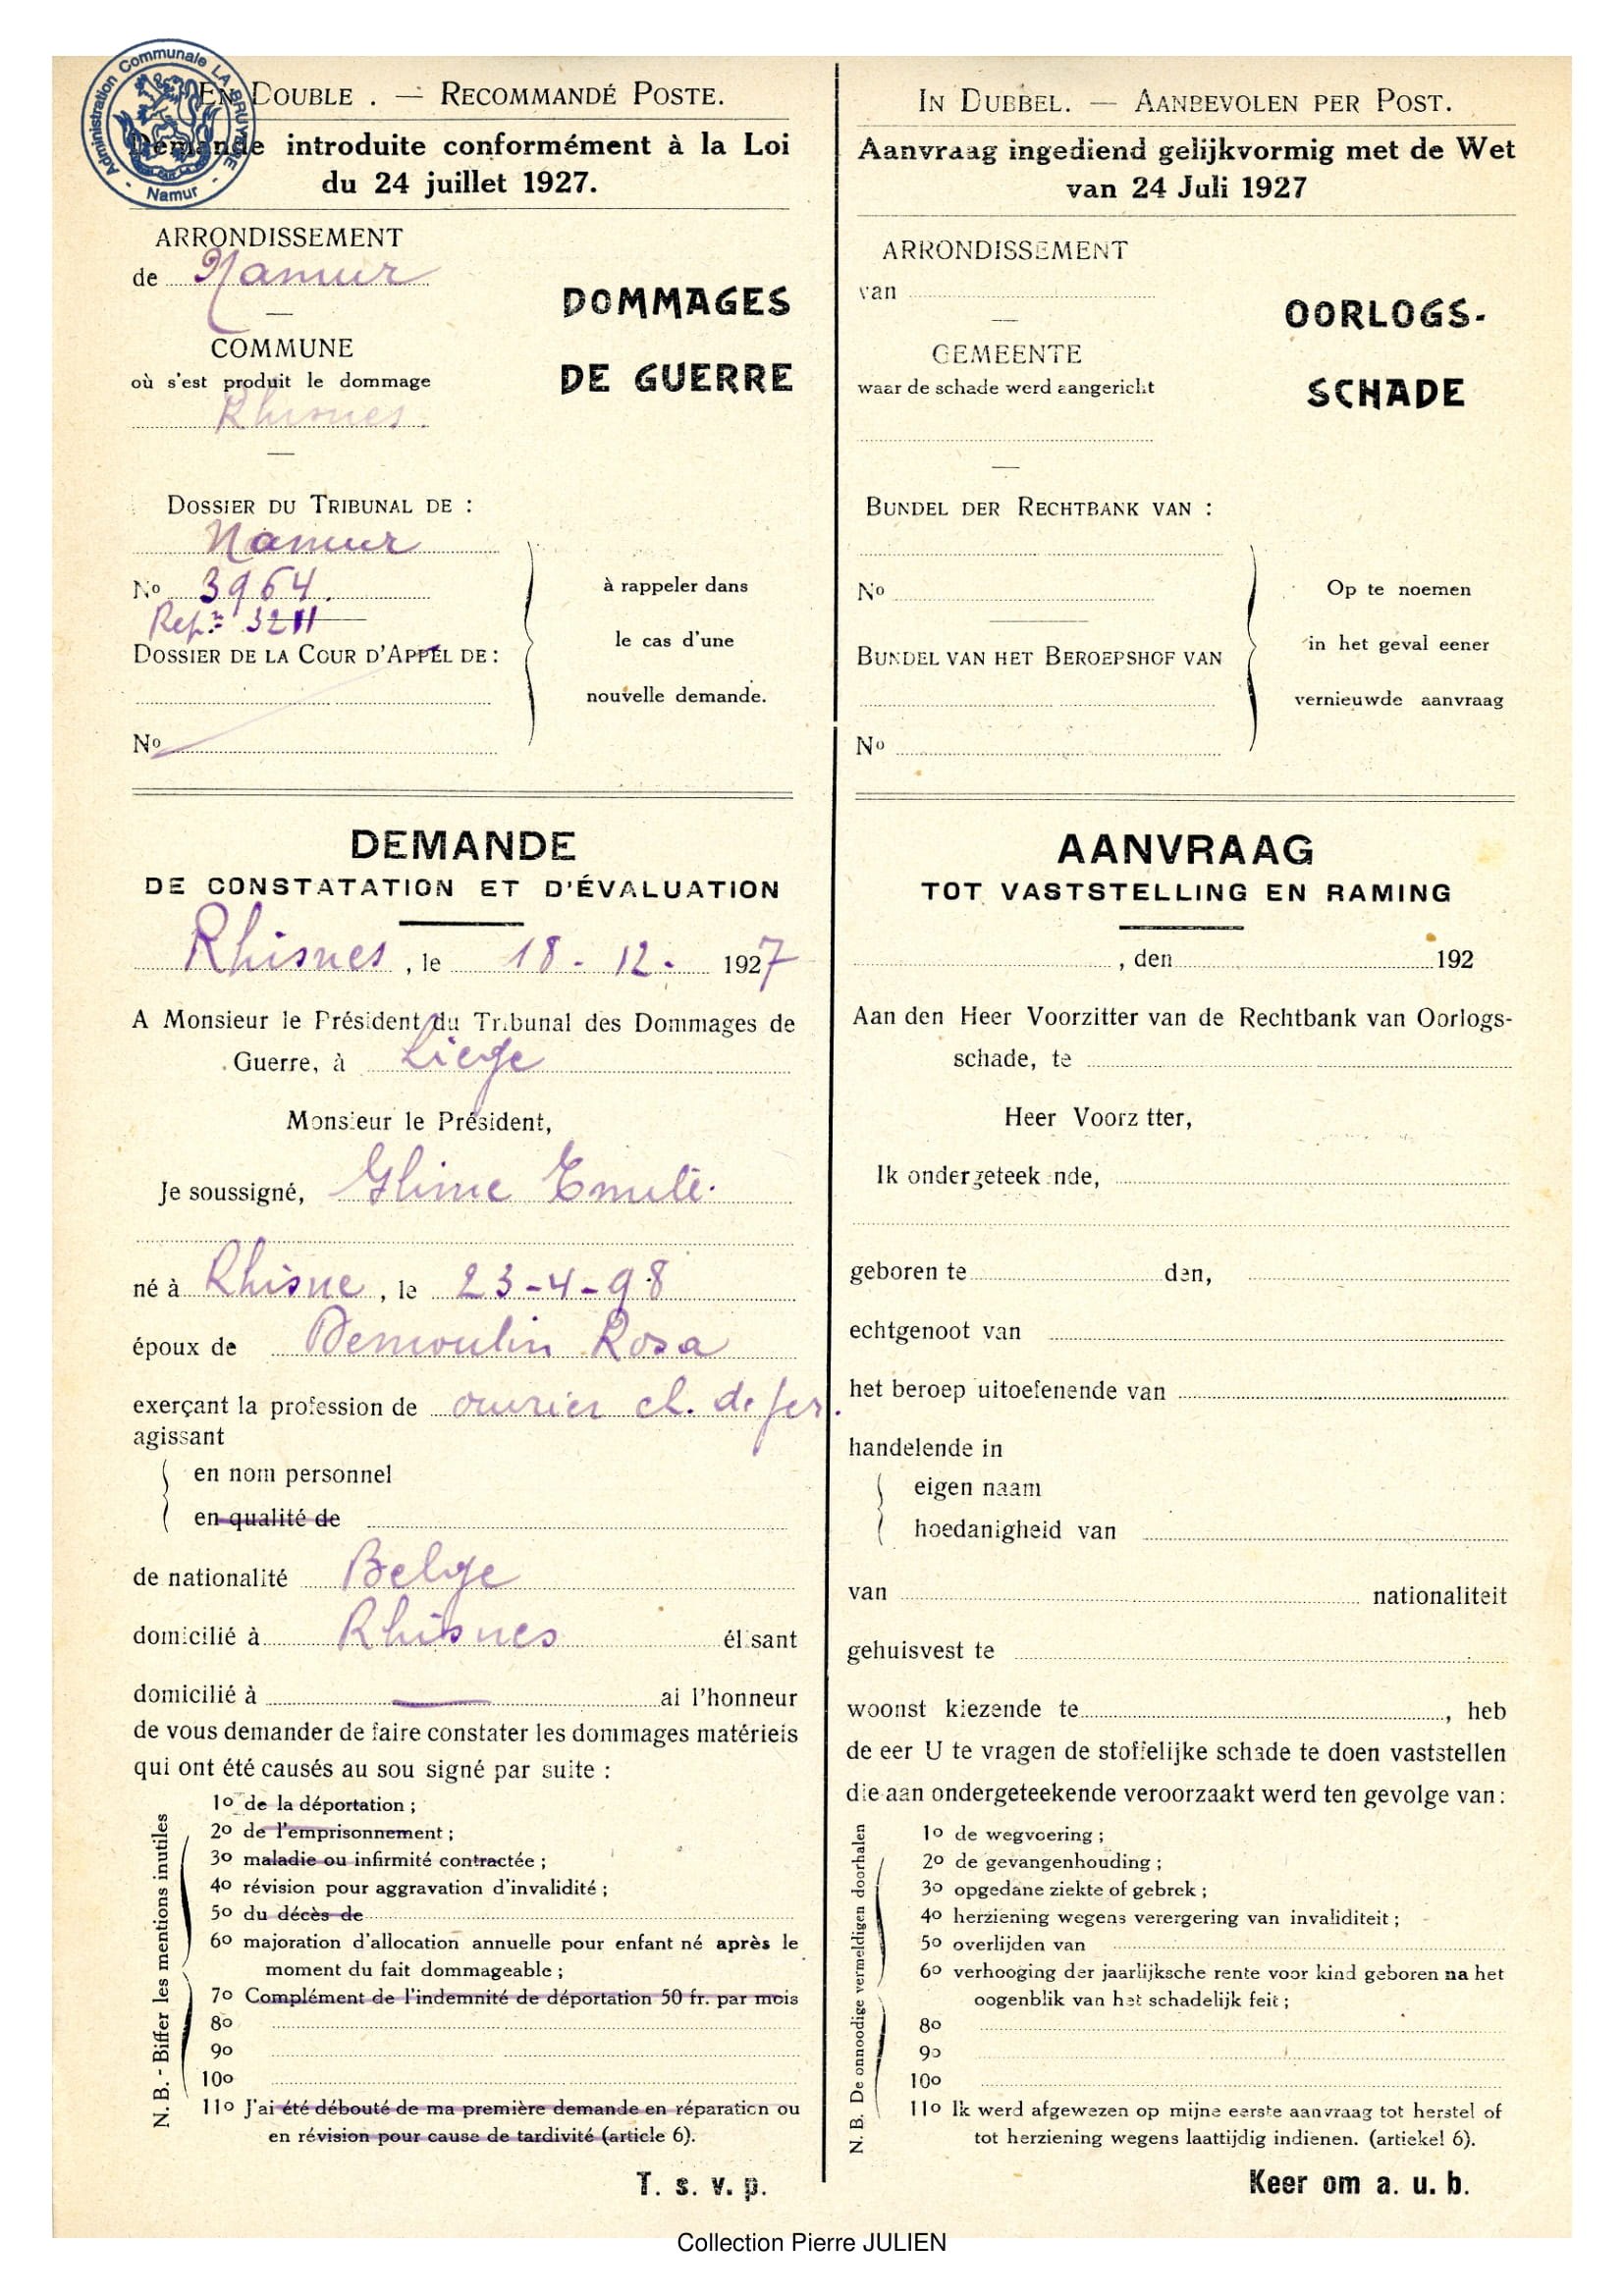 Administration Communale LA BRUYERE - Namur -
EN DOUBLE . — RECOMMANDÉ POSTE.
Demande introduite conformément à la Loi
du 24 juillet 1927.
ARRONDISSEMENT
de Namur
COMMUNE
où s'est produit le dommage
Rhisnes
DOMMAGES
DE GUERRE
DOSSIER DU TRIBUNAL DE :
Namur
No 3964.
Rep. 3211
DOSSIER DE LA COUR D'APPEL DE :
No
à rappeler dans
le cas d'une
nouvelle demande.
DEMANDE
DE CONSTATATION ET D'ÉVALUATION
Rhisnes, le 18 - 12 - 1927
A Monsieur le Président du Tribunal des Dommages de
Guerre, à Liége
Monsieur le Président,
Je soussigné, Glime Emile.
né à Rhisne, le 23-4-98
époux de Demoulin Rosa
exerçant la profession de ouvrier ch. de fer.
agissant
en nom personnel
en qualité de
de nationalité Belge
domicilié à Rhisnes él sant
domicilié à — ai l'honneur
de vous demander de faire constater les dommages matériels
qui ont été causés au sou signé par suite :
N. B. - Biffer les mentions inutiles
1o de la déportation ;
2o de l'emprisonnement ;
3o maladie ou infirmité contractée ;
4o révision pour aggravation d'invalidité ;
5o du décès de
6o majoration d'allocation annuelle pour enfant né après le
moment du fait dommageable ;
7o Complément de l'indemnité de déportation 50 fr. par mois
8o
9o
10o
11o J'ai été débouté de ma première demande en réparation ou
en révision pour cause de tardivité (article 6).
T. s. v. p.
IN DUBBEL. — AANBEVOLEN PER POST.
Aanvraag ingediend gelijkvormig met de Wet
van 24 Juli 1927
ARRONDISSEMENT
van
GEMEENTE
waar de schade werd aangericht
OORLOGS-
SCHADE
BUNDEL DER RECHTBANK VAN :
No
BUNDEL VAN HET BEROEPSHOF VAN
No
Op te noemen
in het geval eener
vernieuwde aanvraag
AANVRAAG
TOT VASTSTELLING EN RAMING
, den 192
Aan den Heer Voorzitter van de Rechtbank van Oorlogs-
schade, te
Heer Voorz tter,
Ik ondergeteek nde,
geboren te den,
echtgenoot van
het beroep uitoefenende van
handelende in
eigen naam
hoedanigheid van
van nationaliteit
gehuisvest te
woonst kiezende te , heb
de eer U te vragen de stoffelijke schade te doen vaststellen
die aan ondergeteekende veroorzaakt werd ten gevolge van :
N. B. De onnoodige vermeldigen doorhalen
1o de wegvoering ;
2o de gevangenhouding ;
3o opgedane ziekte of gebrek ;
4o herziening wegens verergering van invaliditeit ;
5o overlijden van
6o verhooging der jaarlijksche rente voor kind geboren na het
oogenblik van het schadelijk feit ;
8o
9o
10o
11o Ik werd afgewezen op mijne eerste aanvraag tot herstel of
tot herziening wegens laattijdig indienen. (artiekel 6).
Keer om a. u. b.
Collection Pierre JULIEN